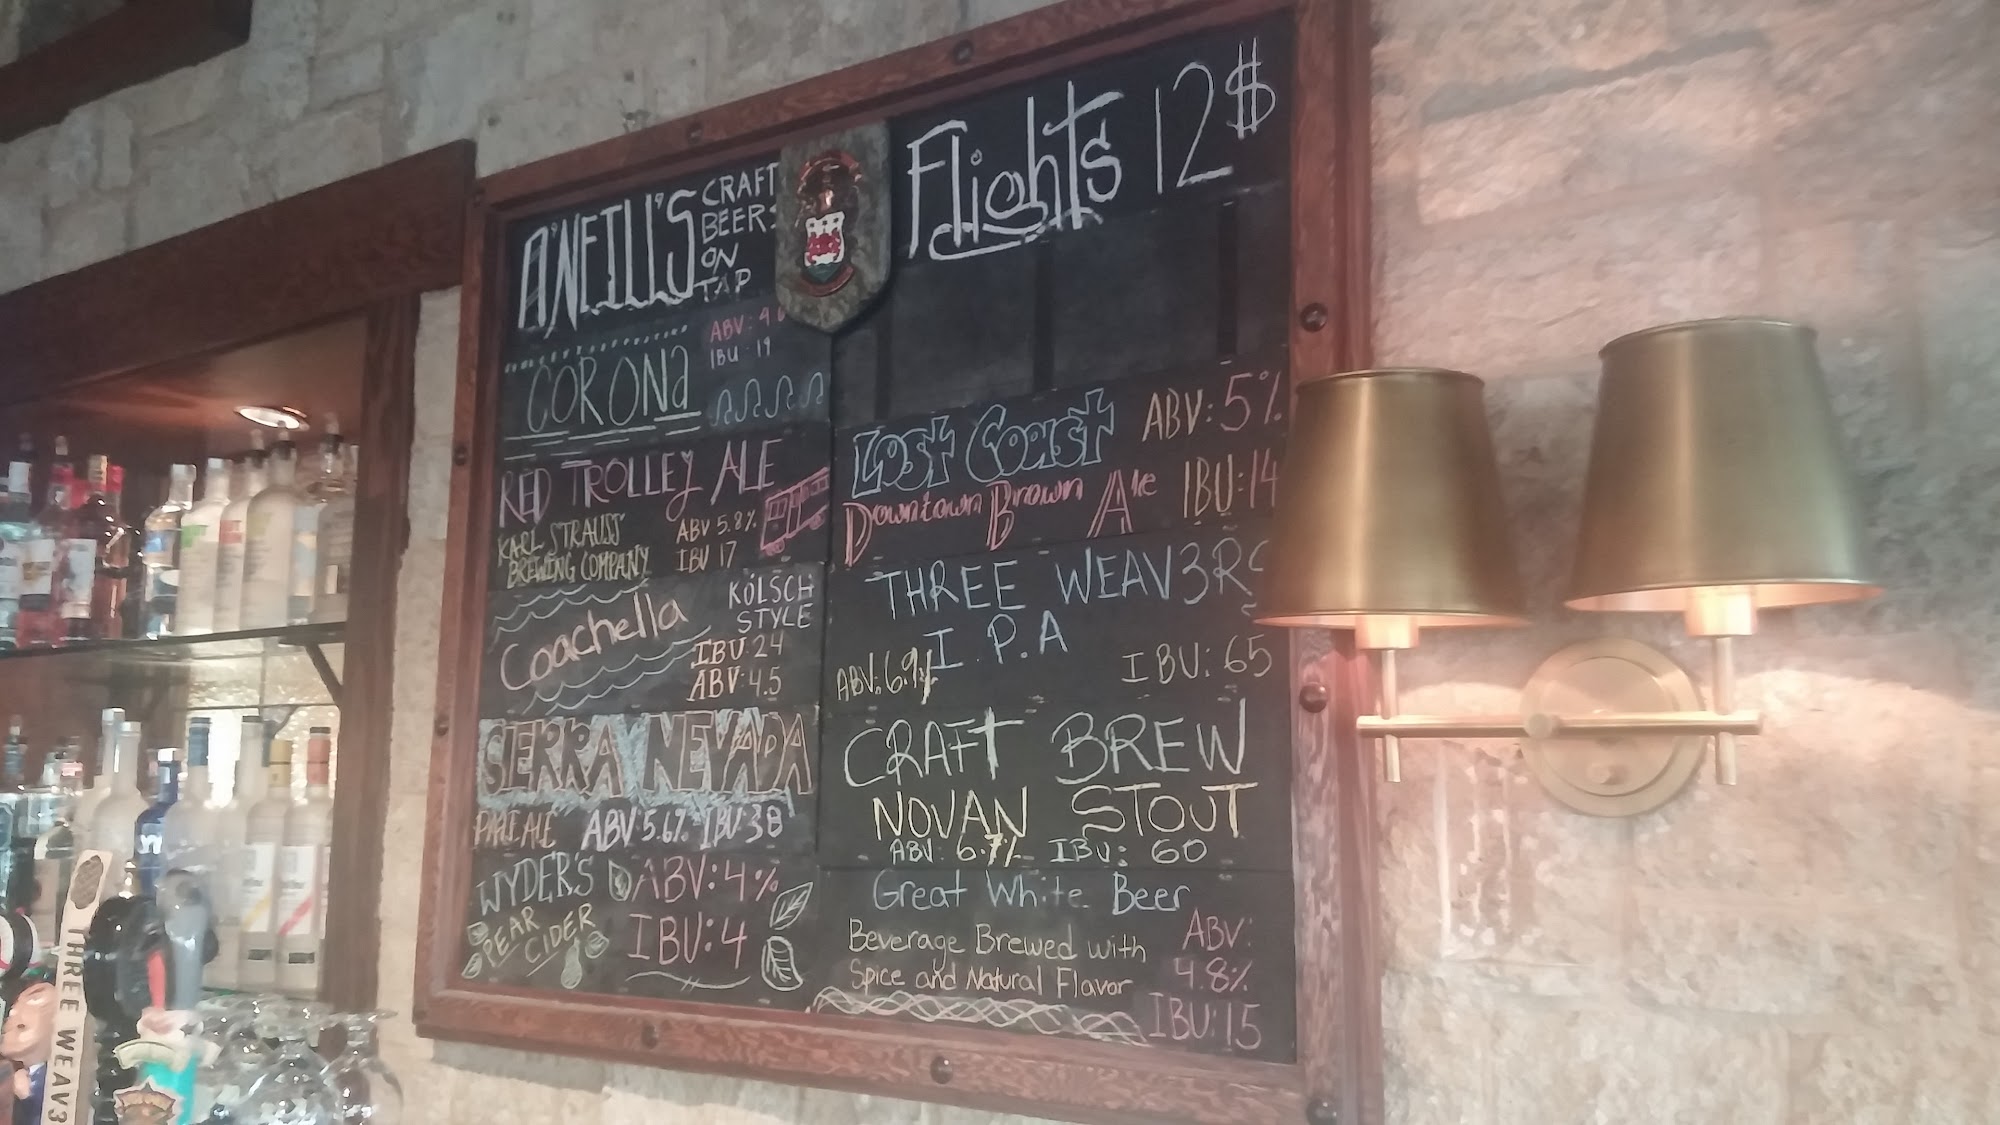 A'NEILL'S
CRAFT
BEERS
ON
TAP
Flights 12$
CORONA
ABV: 4.6
IBU: 19
RED TROLLEY ALE
KARL STRAUSS
BREWING COMPANY
ABV 5.8%
IBU 17
Coachella
KÖLSCH
STYLE
IBU: 24
ABV: 4.5
SIERRA NEVADA
PALE ALE ABV: 5.6% IBU: 38
WYDER'S
PEAR
CIDER
ABV: 4%
IBU: 4
Lost Coast
Downtown Brown Ale
ABV: 5%
IBU: 14
THREE WEAV3RS
I.P.A
ABV: 6.9%
IBU: 65
CRAFT BREW
NOVAN STOUT
ABV: 6.7% IBU: 60
Great White Beer
Beverage Brewed with
Spice and Natural Flavor
ABV:
4.8%
IBU: 15
THREE WEAV3